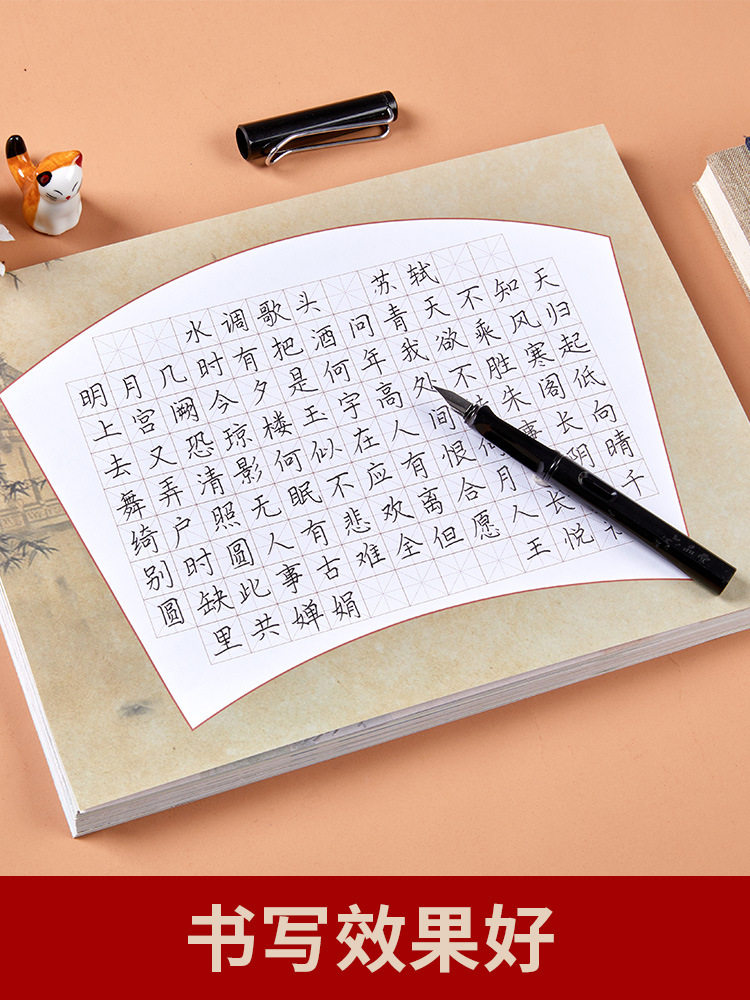 水调歌头 苏轼
明月几时有把酒问青天不知天
上宫阙今夕是何年我欲乘风归
去又恐琼楼玉宇高处不胜寒起
舞弄清影何似在人间转朱阁低
绮户照无眠不应有恨何事长向
别时圆人有悲欢离合月阴晴
圆缺此事古难全但愿人长千
里共婵娟 王悦
书写效果好